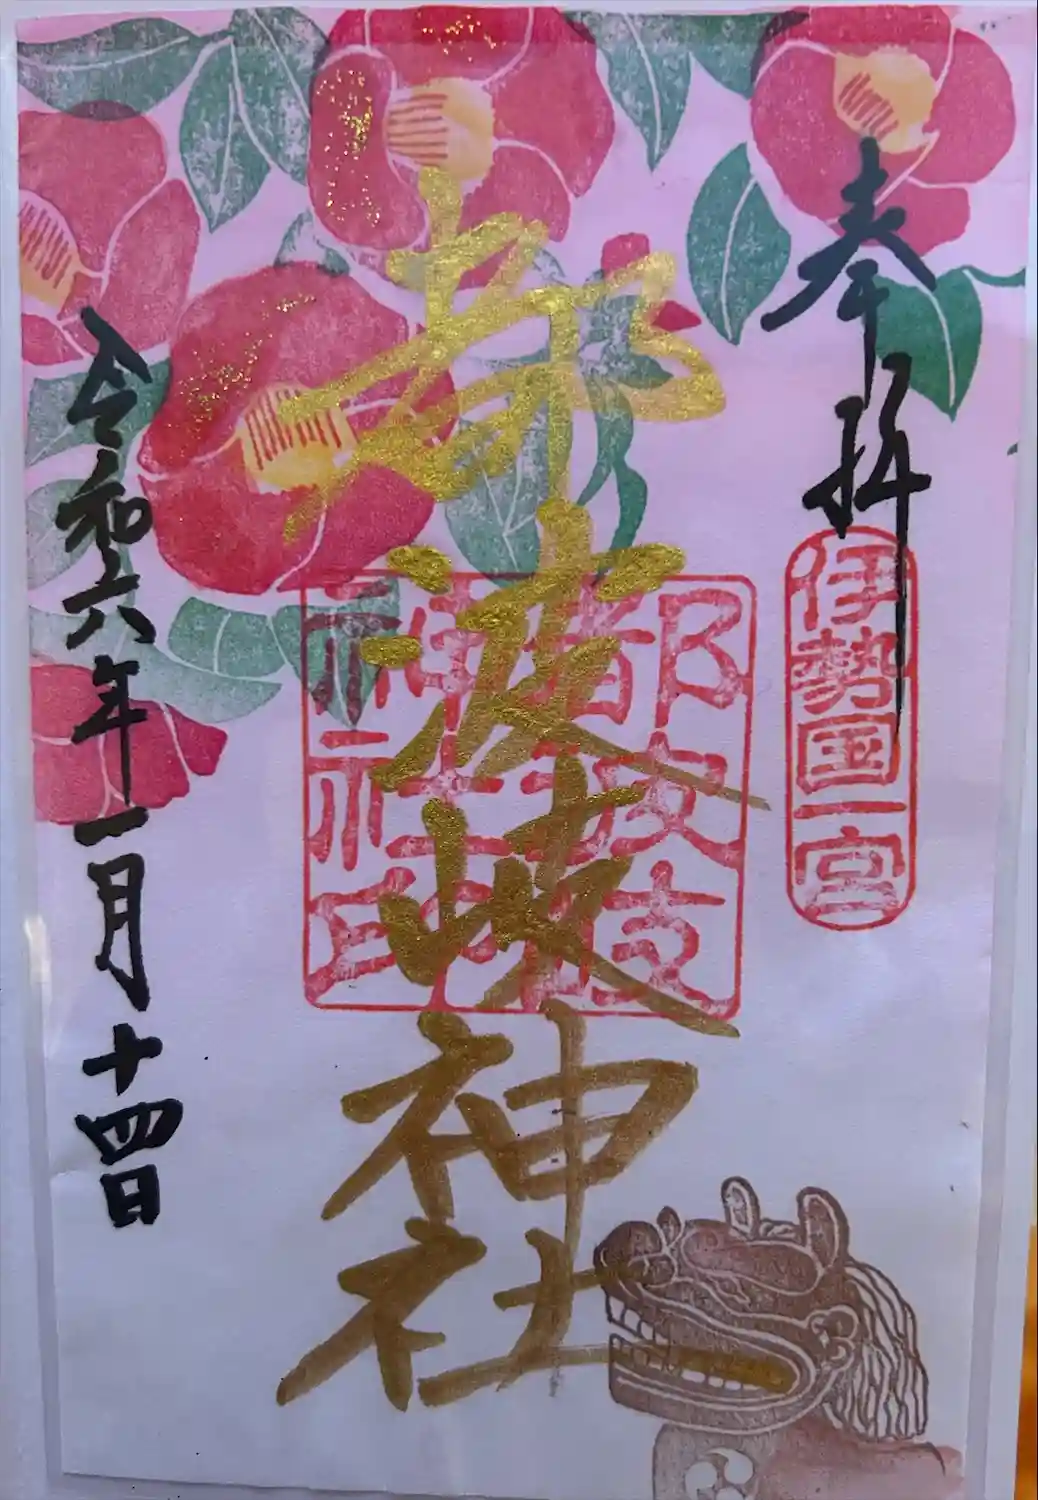 奉拝
伊勢国一宮
都波岐神社
都波岐
神社印
令和六年一月十四日